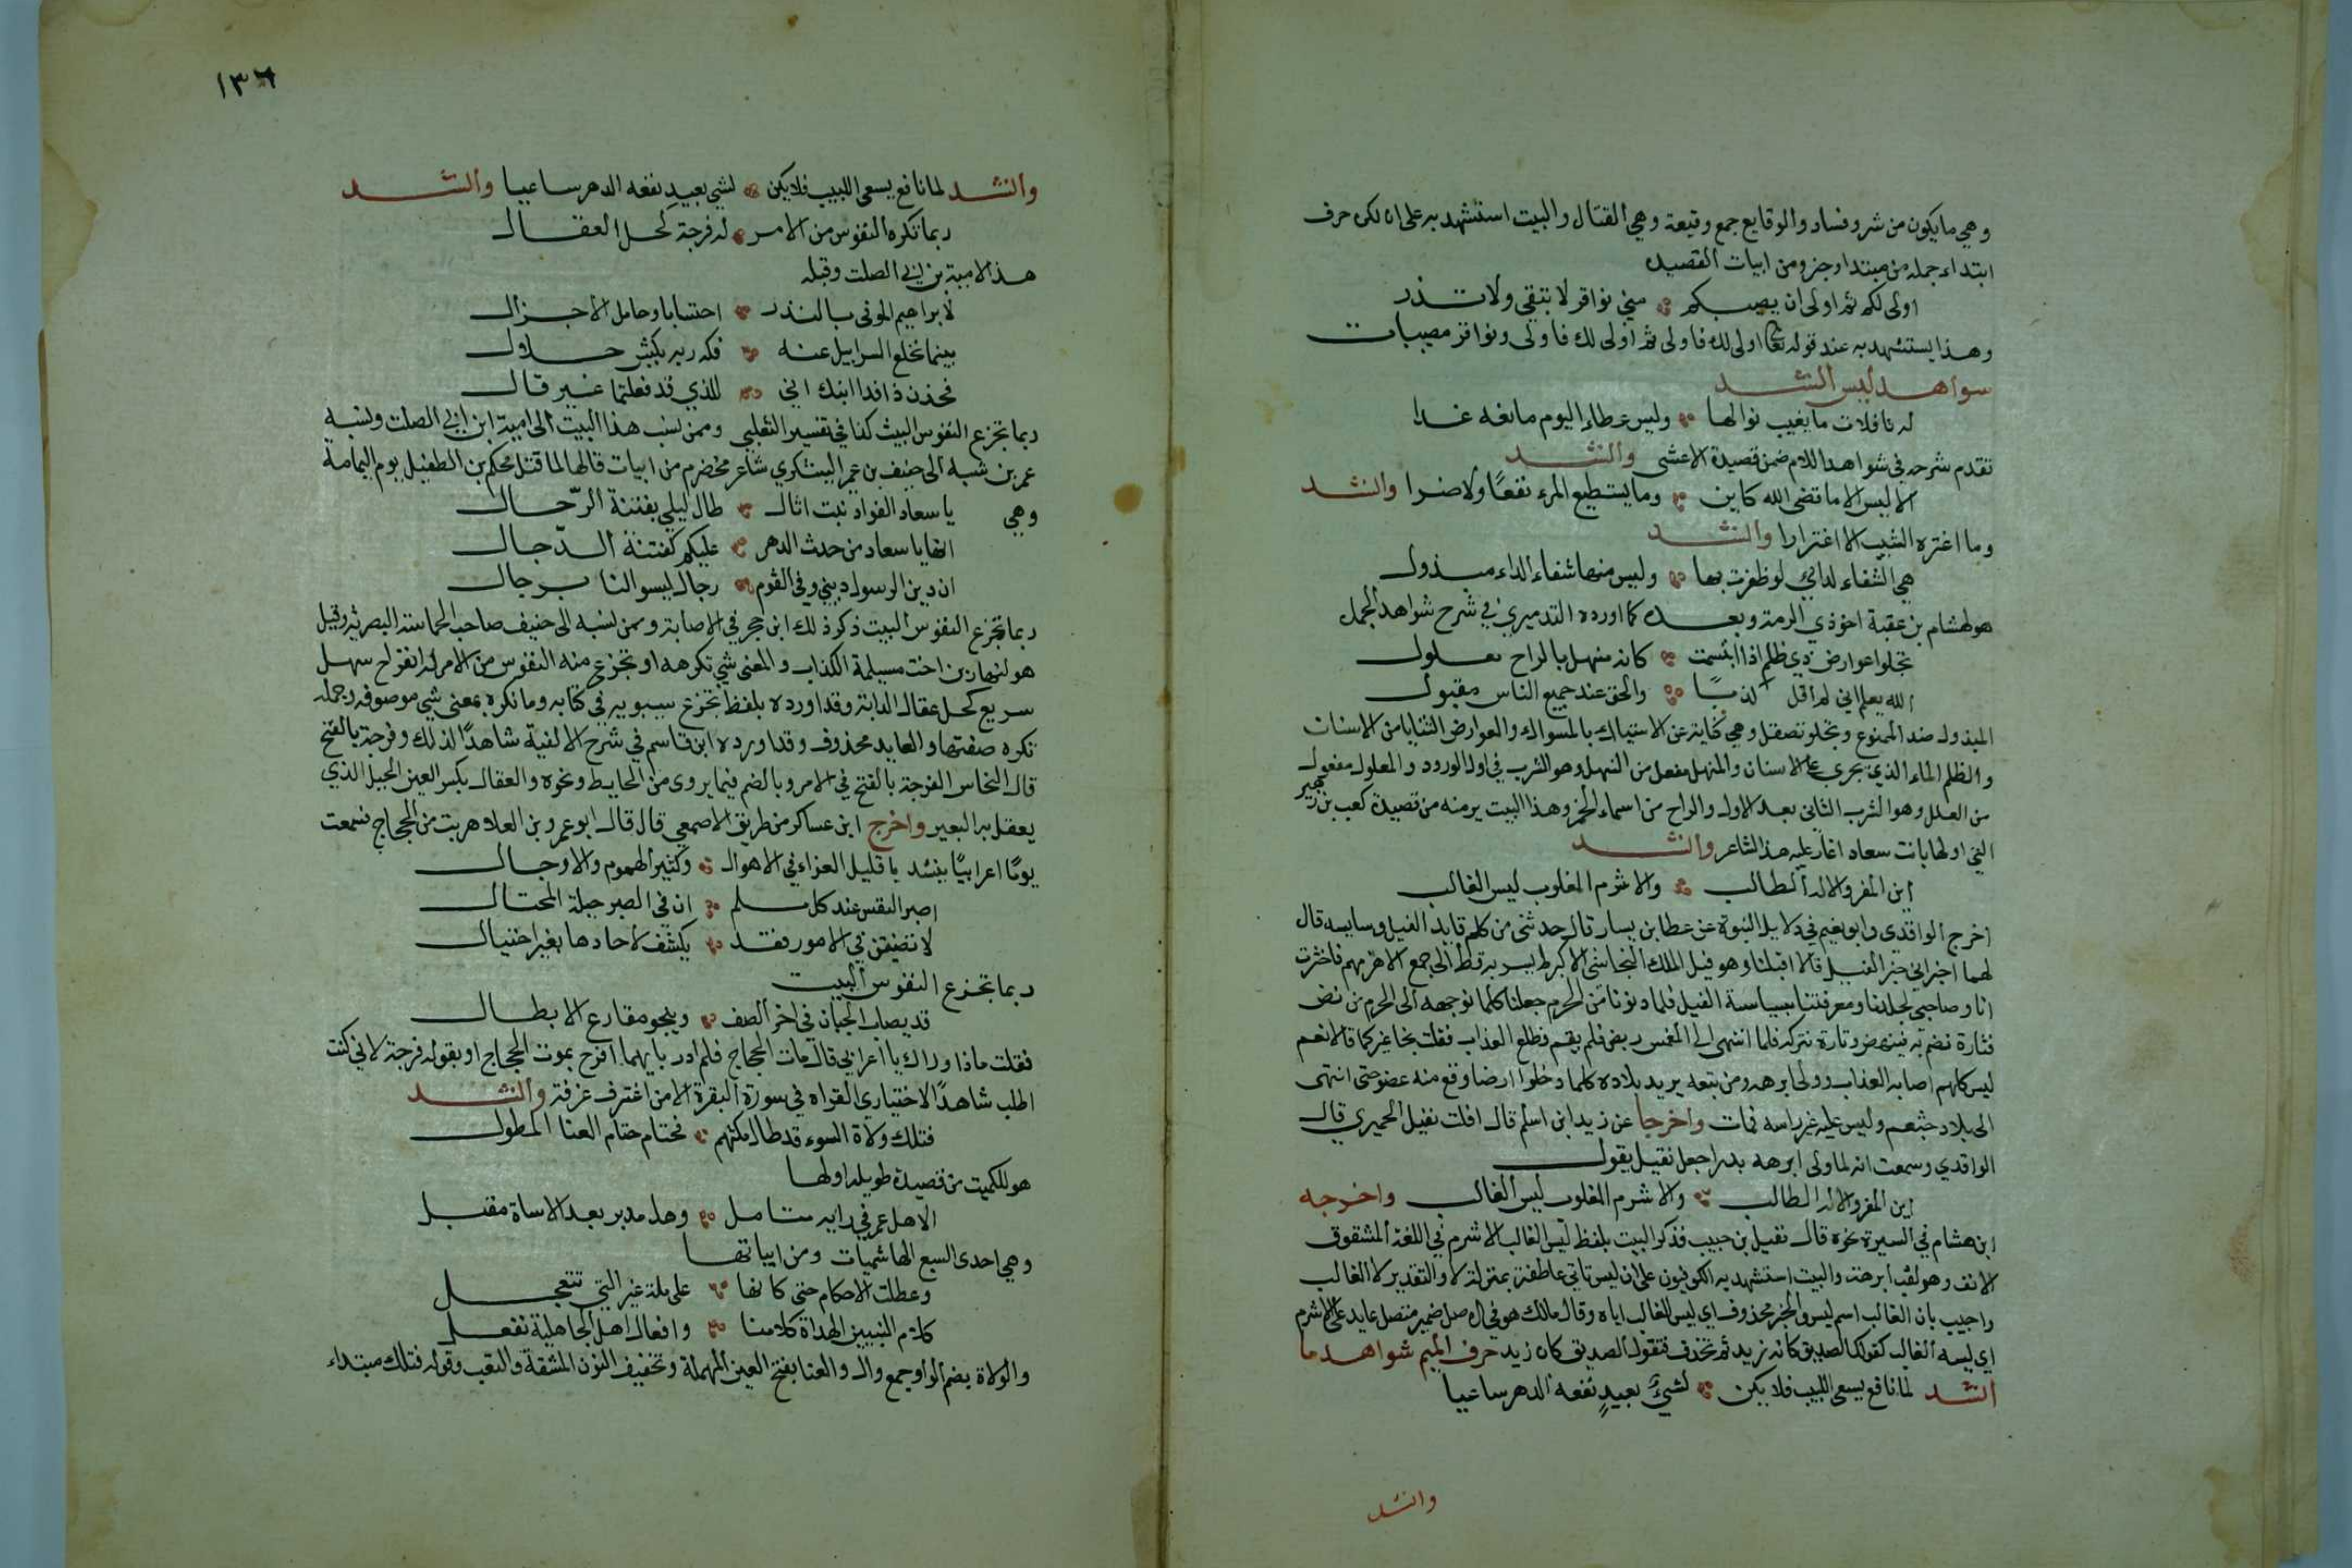 وهي ما يكون من شر وفساد والوقايع جمع وقيعة وهي القتال والبيت استشهد به على ان لكن حرف
ابتداء جمله من مبتدا وخبر ومن ابيات القصيده
اولى لكم ثم اولى ان يصيبكم مني نواقر لا تبقي ولا تذر
وهذا يستشهد به عند قوله تعالى اولى لك فاولى ثم اولى لك فاولى ونواقر مصيبات
شواهد ليس انشد
له نافلات ما يغيب نوالها وليس عطاء اليوم مانعه غدا
تقدم شرحه في شواهد اللام ضمن قصيدة الاعشى وانشد
الا ليس الا ما قضى الله كاين وما يستطيع المرء نفعًا ولا ضرا وانشد
وما اغتره الشيب الا اغترارا وانشد
هي الشفاء لدائي لو ظفرت بها وليس منها شفاء الداء مبذول
هو لهشام بن عقبة اخو ذي الرمة وبعده كما اورده التدميري في شرح شواهد الجمل
تجلوا عوارض ذي ظلم اذا ابتسمت كانه منهل بالراح معلول
الله يعلم اني لم اقل كذبًا والحق عند جميع الناس مقبول
المبذول ضد الممنوع وتجلو تصقل وهي كناية عن الاستياك بالمسواك والعوارض الثنايا من الاسنان
والظلم الماء الذي يجري على الاسنان والمنهل مفعل من النهل وهو الشرب في اول الورود والمعلول مفعول
من العلل وهو الشرب الثاني بعد الاول والراح من اسماء الخمر وهذا البيت برمته من قصيدة كعب بن زهير
التي اولها بانت سعاد اغار عليه هذا الشاعر وانشد
اين المفر والاله الطالب والاشرم المغلوب ليس الغالب
اخرج الواقدي وابو نعيم في دلايل النبوة عن عطا بن يسار قال حدثني من كلم قايد الفيل وسايسه قال
لهما اخبراني خبر الفيل قالا اقبلنا وهو فيل الملك النجاشي الاكبر لم يسر به قط الى جمع الا هزمهم فاخترت
انا وصاحبي لجلدنا ومعرفتنا بسياسة الفيل فلما دنونا من الحرم جعلنا كلما نوجهه الى الحرم
فتارة نضربه فينهض وتارة نتركه فلما انتهى الى المغمس ربض فلم يقم وطلع العذاب فقلت نجا غيركما قالا نعم
ليس كلهم اصابه العذاب وولى ابرهه ومن تبعه يريد بلاده كلما دخلوا ارضا وقع منه عضو حتى انتهى
الى بلاد خثعم وليس عليه غير راسه فمات واخرجا عن زيد ابن اسلم قال افلت نفيل الحميري قال
الواقدي وسمعت انه لما ولى ابرهه مدبرا جعل نفيل يقول
اين المفر والاله الطالب والاشرم المغلوب ليس الغالب واخرجه
ابن هشام في السيرة نحوه قال نفيل بن حبيب فذكر البيت بلفظ ليس الغالب الاشرم في اللغة المشقوق
الانف وهو لقب ابرهة والبيت استشهد به الكوفيون على ان ليس تاتي عاطفة بمنزلة لا والتقدير لا الغالب
واجيب بان الغالب اسم ليس والخبر محذوف اي ليس الغالب اياه وقال مالك هو في الاصل ضمير متصل عايد على الاشرم
اي ليسه الغالب كقولك الصديق كانه زيد ثم تحذف فتقول الصديق كان زيد حرف الميم شواهد ما
انشد لما نافع يسعى اللبيب فلا يكن لشيءٍ بعيدٍ نفعه الدهر ساعيا
وانشد
١٣٦
وانشد لما نافع يسعى اللبيب فلا يكن لشي بعيد نفعه الدهر ساعيا وانشد
ربما تكره النفوس من الامر له فرجة كحل العقال
هذا لامية بن ابي الصلت وقبله
لابراهيم الموفي بالنذر احتسابا وحامل الاجزال
بينما تخلع السرابيل عنه فكه ربه بكبش حلال
فخذن ذا فدا ابنك اني للذي قد فعلتما غير قال
ربما تجزع النفوس البيت كذا في تفسير الثعلبي وممن نسب هذا البيت الى امية ابن ابي الصلت ونسبه
عمر بن شبه الى حنيف بن عمير اليشكري شاعر مخضرم من ابيات قالها لما قتل محكم بن الطفيل يوم اليمامة
وهي يا سعاد الفواد بنت اثال طال ليلي بفتنة الرّحال
انها يا سعاد من حدث الدهر عليكم كفتنة الدّجال
ان دين الرسول ديني وفي القوم رجال ليسوا لنا برجال
ربما تجزع النفوس البيت ذكر ذلك ابن حجر في الاصابة وممن نسبه الى حنيف صاحب الحماسة البصرية وقيل
هو لنهار بن اخت مسيلمة الكذاب والمعنى شي تكرهه او تجزع منه النفوس من الامر له انفراج سهل
سريع كحل عقال الدابة وقد اورده بلفظ تجزع سيبويه في كتابه وما نكره بمعنى شي موصوفه وجمله
تكره صفتها والعايد محذوف وقد اورده ابن قاسم في شرح الالفية شاهدًا لذلك وفرجة بالفتح
قال النحاس الفرجة بالفتح في الامر وبالضم فيما يروى من الحايط ونحوه والعقال بكسر العين الحبل الذي
يعقل به البعير واخرج ابن عساكر من طريق الاصمعي قال قال ابو عمرو بن العلا هربت من الحجاج فسمعت
يومًا اعرابيًا ينشد يا قليل العزاء في الاهوال وكثير الهموم والاوجال
اصبر النفس عند كل ملم ان في الصبر حيلة المحتال
لا تضيقن في الامور فقد يكشف لاحادها بغير احتيال
ربما تجزع النفوس البيت
قد يصاب الجبان في اخر الصف وينجو مقارع الابطال
فقلت ماذا وراك يا اعرابي قال مات الحجاج فلم ادر بايهما افرح بموت الحجاج او بقوله فرجة لاني كنت
اطلب شاهدًا لاختياري القراه في سورة البقرة الا من اغترف غرفة وانشد
فتلك ولاة السوء قد طال مكثهم فحتام حتام العنا المطول
هو للكميت من قصيدة طويله اولها
الا هل عم في رايه متامل وهل مدبر بعد الاساة مقبل
وهي احدى السبع الهاشميات ومن ابياتها
وعطلت الاحكام حتى كانها على ملة غير التي نتنحل
كلام النبيين الهداة كلامنا وافعال اهل الجاهلية نفعل
والولاة بضم الواو جمع وال والعنا بفتح العين المهملة وتخفيف النون المشقة والتعب وقوله فتلك مبتداء